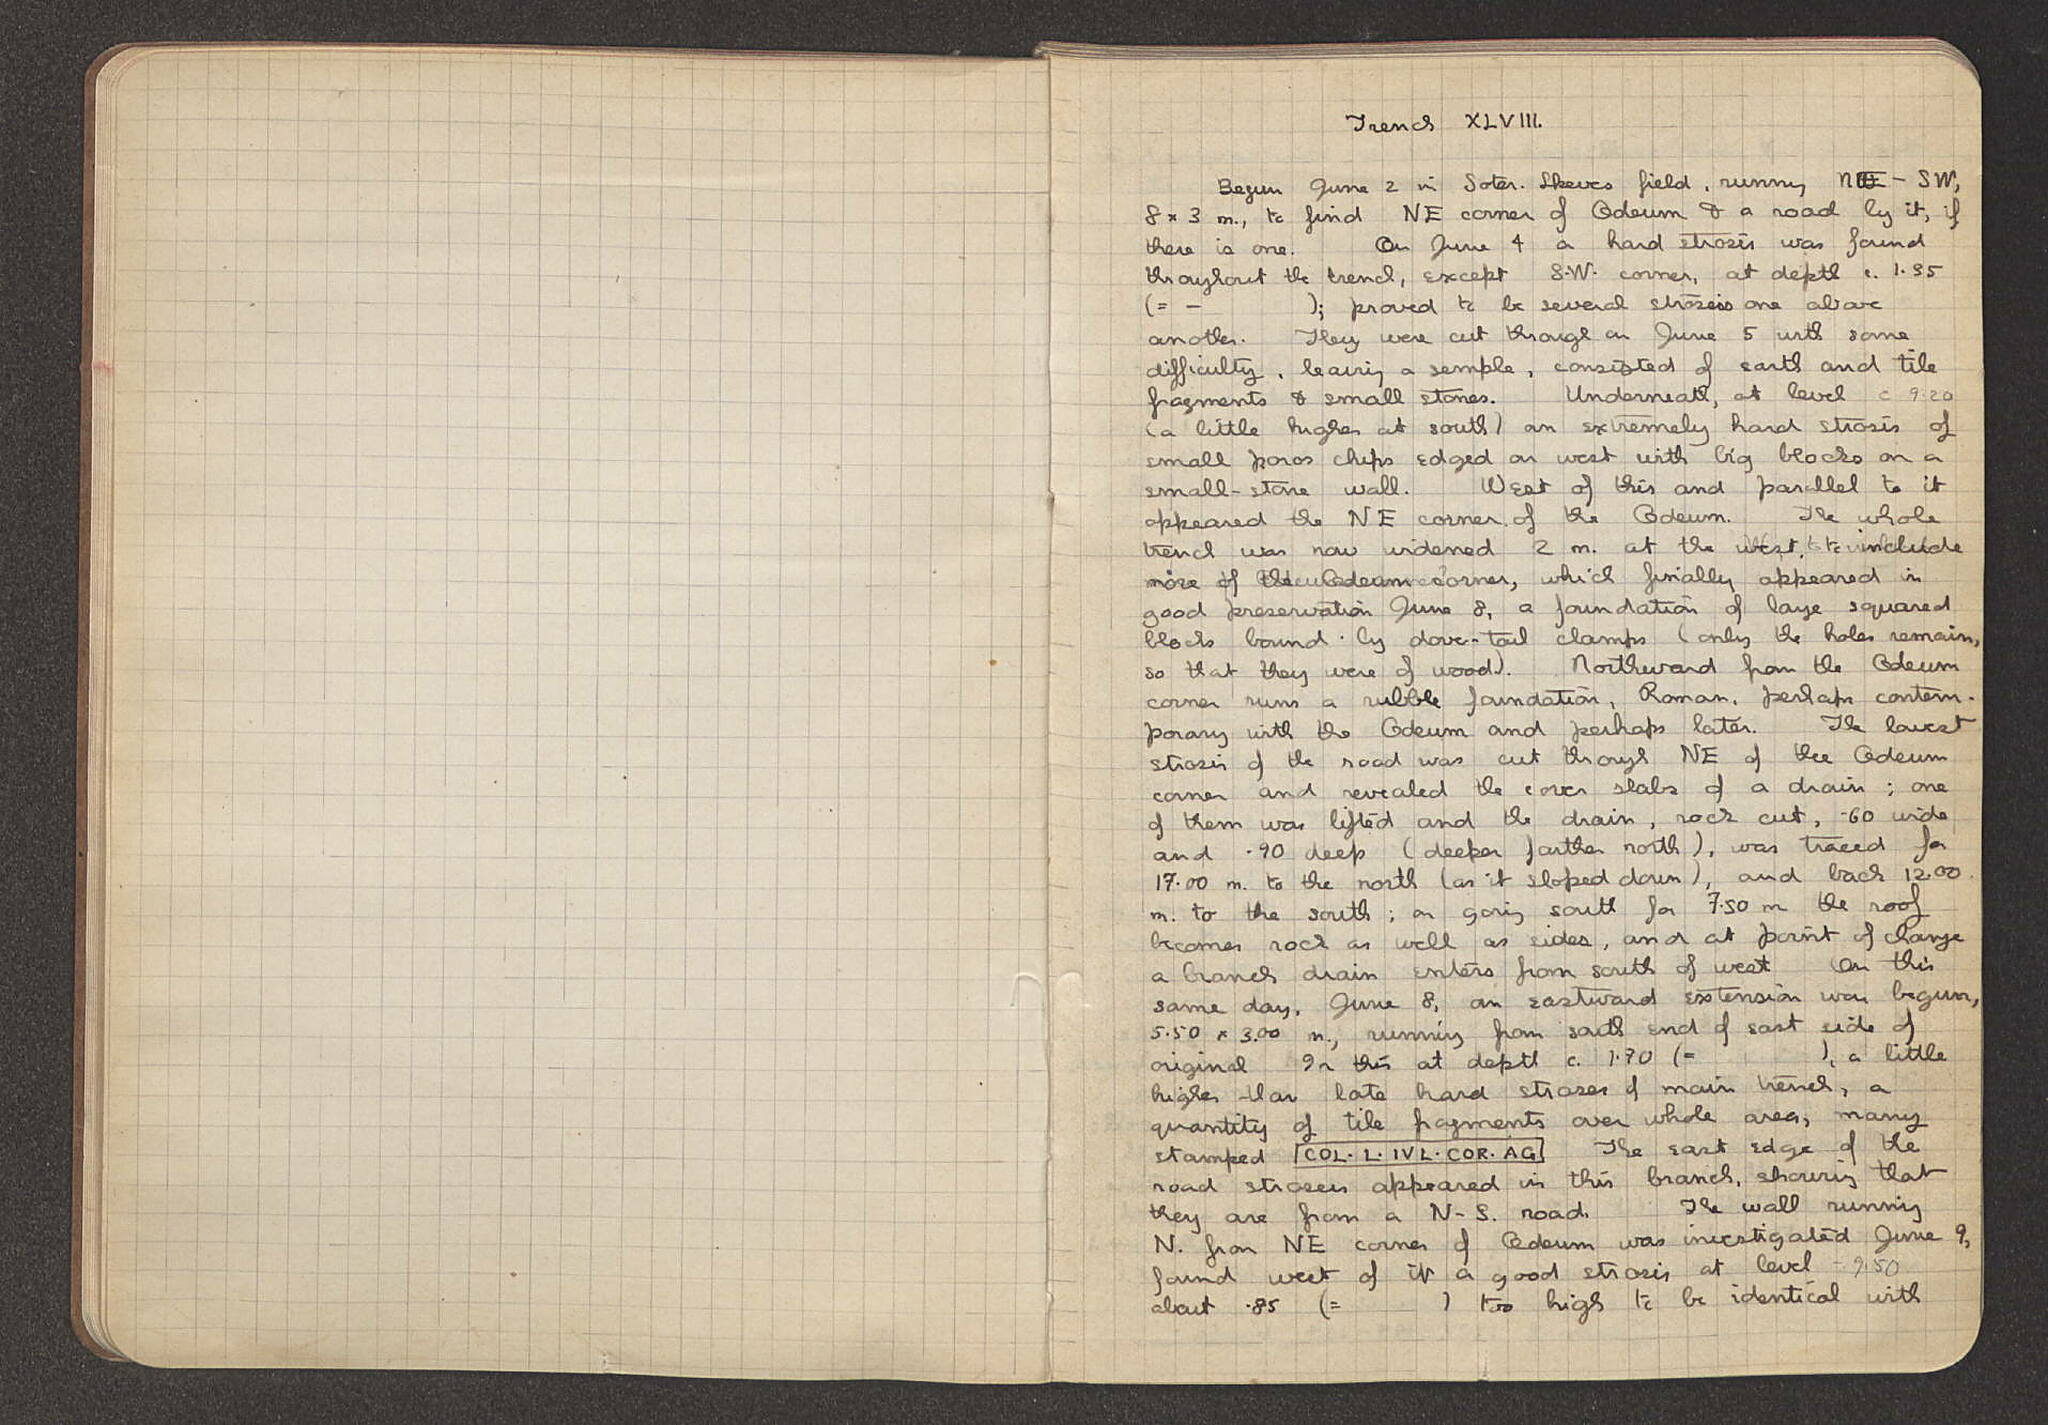 Trench XLVIII.
Begun June 2 in Soter. Skevos field, running NE - SW,
8 × 3 m., to find NE corner of Odeum & a road by it, if
there is one. On June 4 a hard strosis was found
throughout the trench, except S.W. corner, at depth c. 1.95
(= - ); proved to be several stroseis one above
another. They were cut through on June 5 with some
difficulty, leaving a sample, consisted of earth and tile
fragments & small stones. Underneath, at level c 9.20
(a little higher at south) an extremely hard strosis of
small poros chips edged on west with big blocks on a
small-stone wall. West of this and parallel to it
appeared the NE corner of the Odeum. The whole
trench was now widened 2 m. at the west, to include
more of the Odeum corner, which finally appeared in
good preservation June 8, a foundation of large squared
blocks bound by dove-tail clamps (only the holes remain,
so that they were of wood). Northward from the Odeum
corner runs a rubble foundation, Roman, perhaps contem-
porary with the Odeum and perhaps later. The lowest
strosis of the road was cut through NE of the Odeum
corner and revealed the cover slabs of a drain; one
of them was lifted and the drain, rock cut, .60 wide
and .90 deep (deeper farther north), was traced for
17.00 m. to the north (as it sloped down), and back 12.00
m. to the south; on going south for 7.50 m the roof
becomes rock as well as sides, and at point of change
a branch drain enters from south of west On this
same day, June 8, an eastward extension was begun,
5.50 × 3.00 m., running from south end of east side of
original In this at depth c. 1.70 (= ), a little
higher than late hard stroses of main trench, a
quantity of tile fragments over whole area, many
stamped COL. L. IVL. COR. AG The east edge of the
road stroseis appeared in this branch, showing that
they are from a N-S. road. The wall running
N. from NE corner of Odeum was investigated June 9,
found west of it a good strosis at level - 9.50
about .85 (= ) too high to be identical with